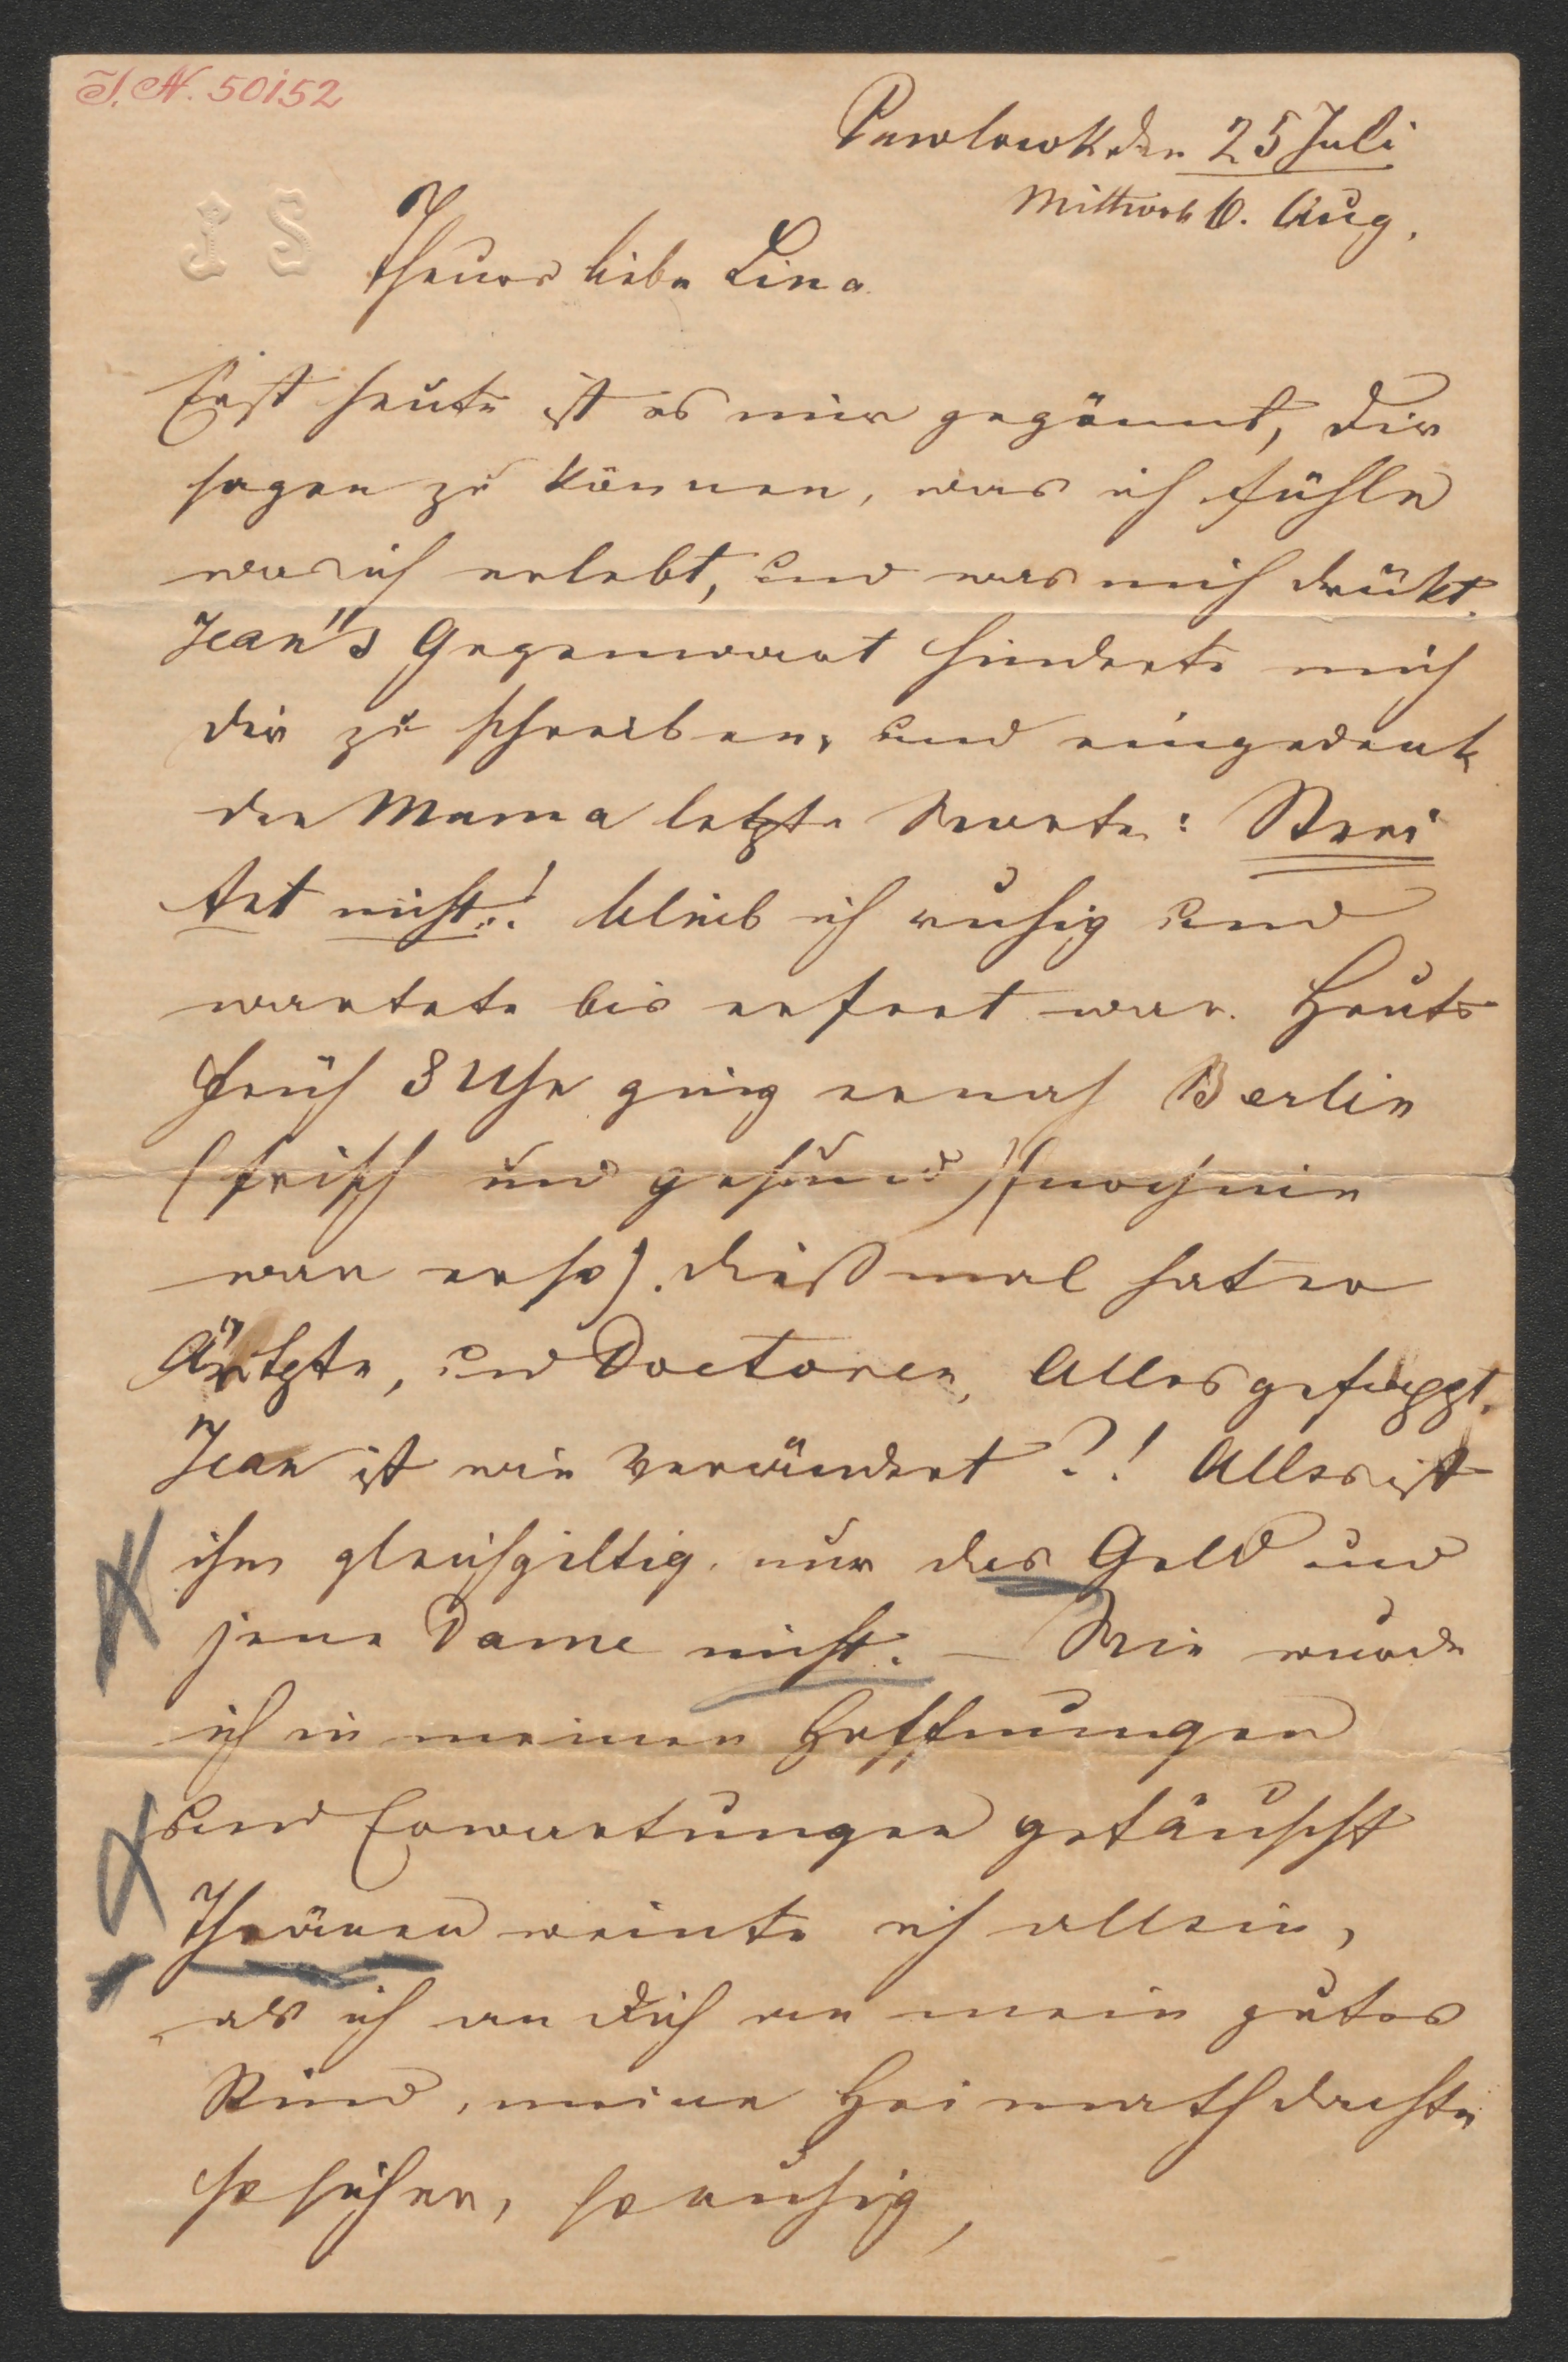 I. N. 50152
Pawlowsk den 25 Juli
Mittwoch 6. Aug.
J S
Theure liebe Lina
Erst heute ist es mir gegönnt, Dir
sagen zu können, was ich fühle
was ich erlebt, und was mich drükt.
Jean's Gegenwart hinderte mich
dir zu schreiben, und eingedenk
der Mama letzte Worte: Strei
tet nicht! blieb ich ruhig und
wartete bis er fort war. Heute
früh 8 Uhr ging er nach Berlin
(frisch und gesund) (noch nie
war er so). dießmal hat er
Ärtzte, und Doctoren, Alles gefoppt.
Jean ist wie verändert?! Alles ist
ihm gleichgiltig nur das Geld und
jene Dame nicht. – Wie wurde
ich in meinen Hoffnungen
und Erwartungen getäuscht
Thränen weinte ich allein,
als ich an dich an mein gutes
Kind, meine Heimath dachte
so sicher, so ruhig,